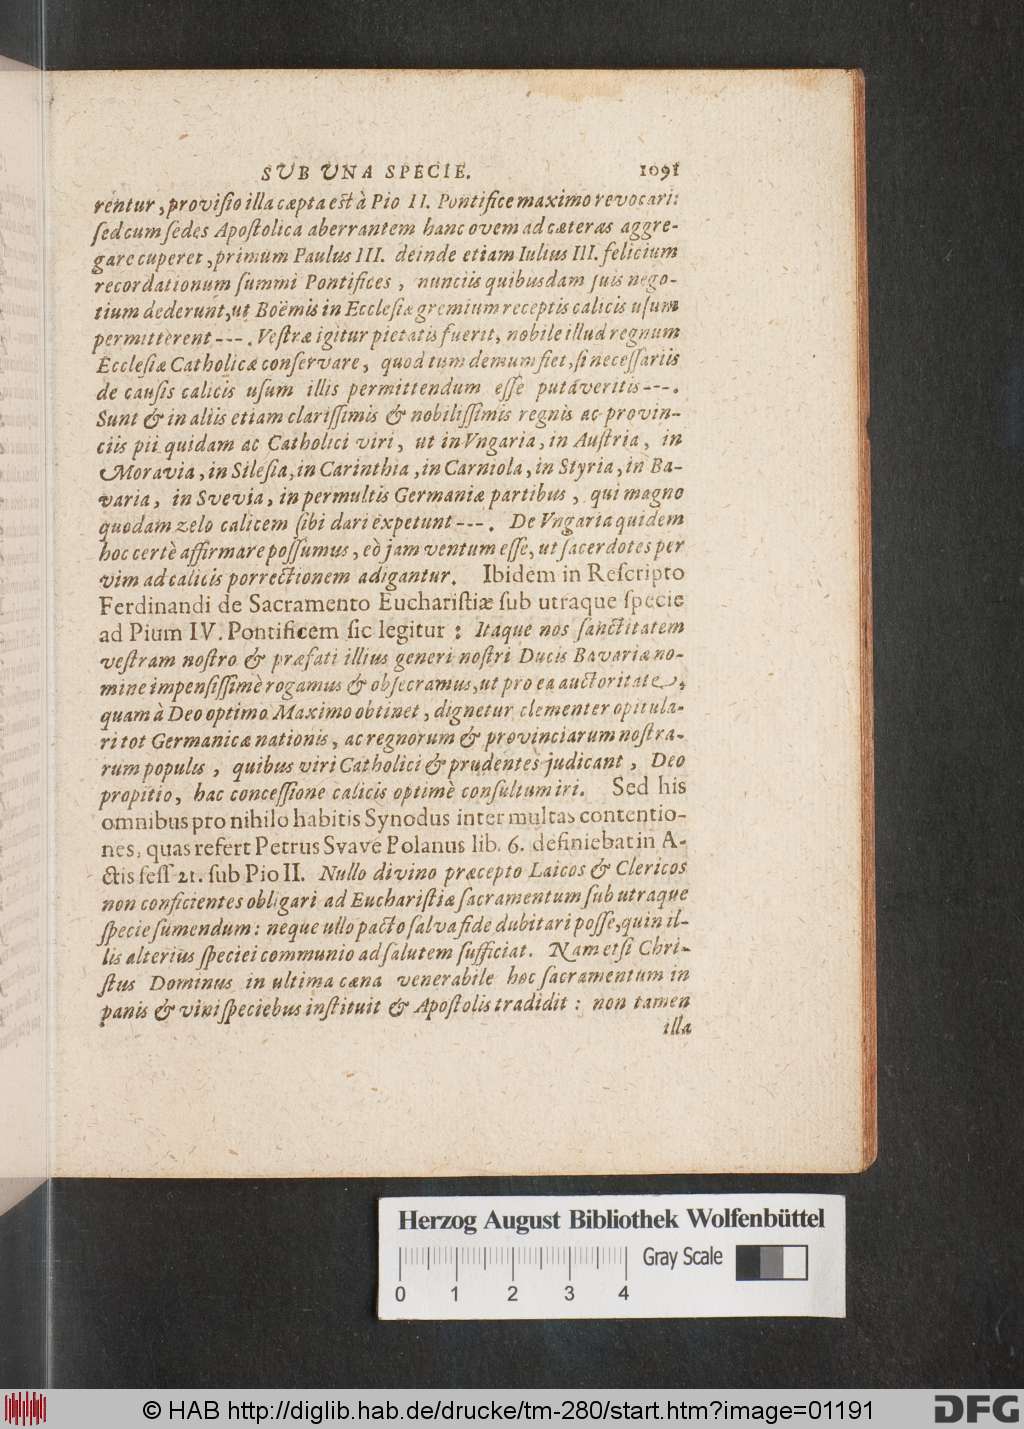 SUB UNA SPECIE. 1091
rentur, provisio illa cæpta est à Pio II. Pontifice maximo revocari:
sed cum sedes Apostolica aberrantem hanc ovem ad cæteras aggre-
gare cuperet, primum Paulus III. deinde etiam Iulius III. felicium
recordationum summi Pontifices, nunciis quibusdam suis nego-
tium dederunt, ut Boëmis in Ecclesiæ gremium receptis calicis usum
permitterent ---. Vestræ igitur pietatis fuerit, nobile illud regnum
Ecclesiæ Catholicæ conservare, quod tum demum fiet, si necessariis
de causis calicis usum illis permittendum esse putaveritis ---.
Sunt & in aliis etiam clarissimis & nobilissimis regnis ac provin-
ciis pii quidam ac Catholici viri, ut in Vngaria, in Austria, in
Moravia, in Silesia, in Carinthia, in Carniola, in Styria, in Ba-
varia, in Svevia, in permultis Germaniæ partibus, qui magno
quodam zelo calicem sibi dari expetunt ---. De Vngaria quidem
hoc certè affirmare possumus, eò jam ventum esse, ut sacerdotes per
vim ad calicis porrectionem adigantur. Ibidem in Rescripto
Ferdinandi de Sacramento Eucharistiæ sub utraque specie
ad Pium IV. Pontificem sic legitur: Itaque nos sanctitatem
vestram nostro & præfati illius generi nostri Ducis Bavariæ no-
mine impensissimè rogamus & obsecramus, ut pro ea auctoritate,
quam à Deo optimo Maximo obtinet, dignetur clementer opitula-
ri tot Germanicæ nationis, ac regnorum & provinciarum nostra-
rum populis, quibus viri Catholici & prudentes judicant, Deo
propitio, hac concessione calicis optimè consultum iri. Sed his
omnibus pro nihilo habitis Synodus inter multas contentio-
nes, quas refert Petrus Svave Polanus lib. 6. definiebat in A-
ctis sess. 21. sub Pio II. Nullo divino præcepto Laicos & Clericos
non conficientes obligari ad Eucharistiæ sacramentum sub utraque
specie sumendum: neque ullo pacto salva fide dubitari posse, quin il-
lis alterius speciei communio ad salutem sufficiat. Nam etsi Chri-
stus Dominus in ultima cæna venerabile hoc sacramentum in
panis & vini speciebus instituit & Apostolis tradidit: non tamen
illa
Herzog August Bibliothek Wolfenbüttel
Gray Scale
0 1 2 3 4
© HAB http://diglib.hab.de/drucke/tm-280/start.htm?image=01191
DFG